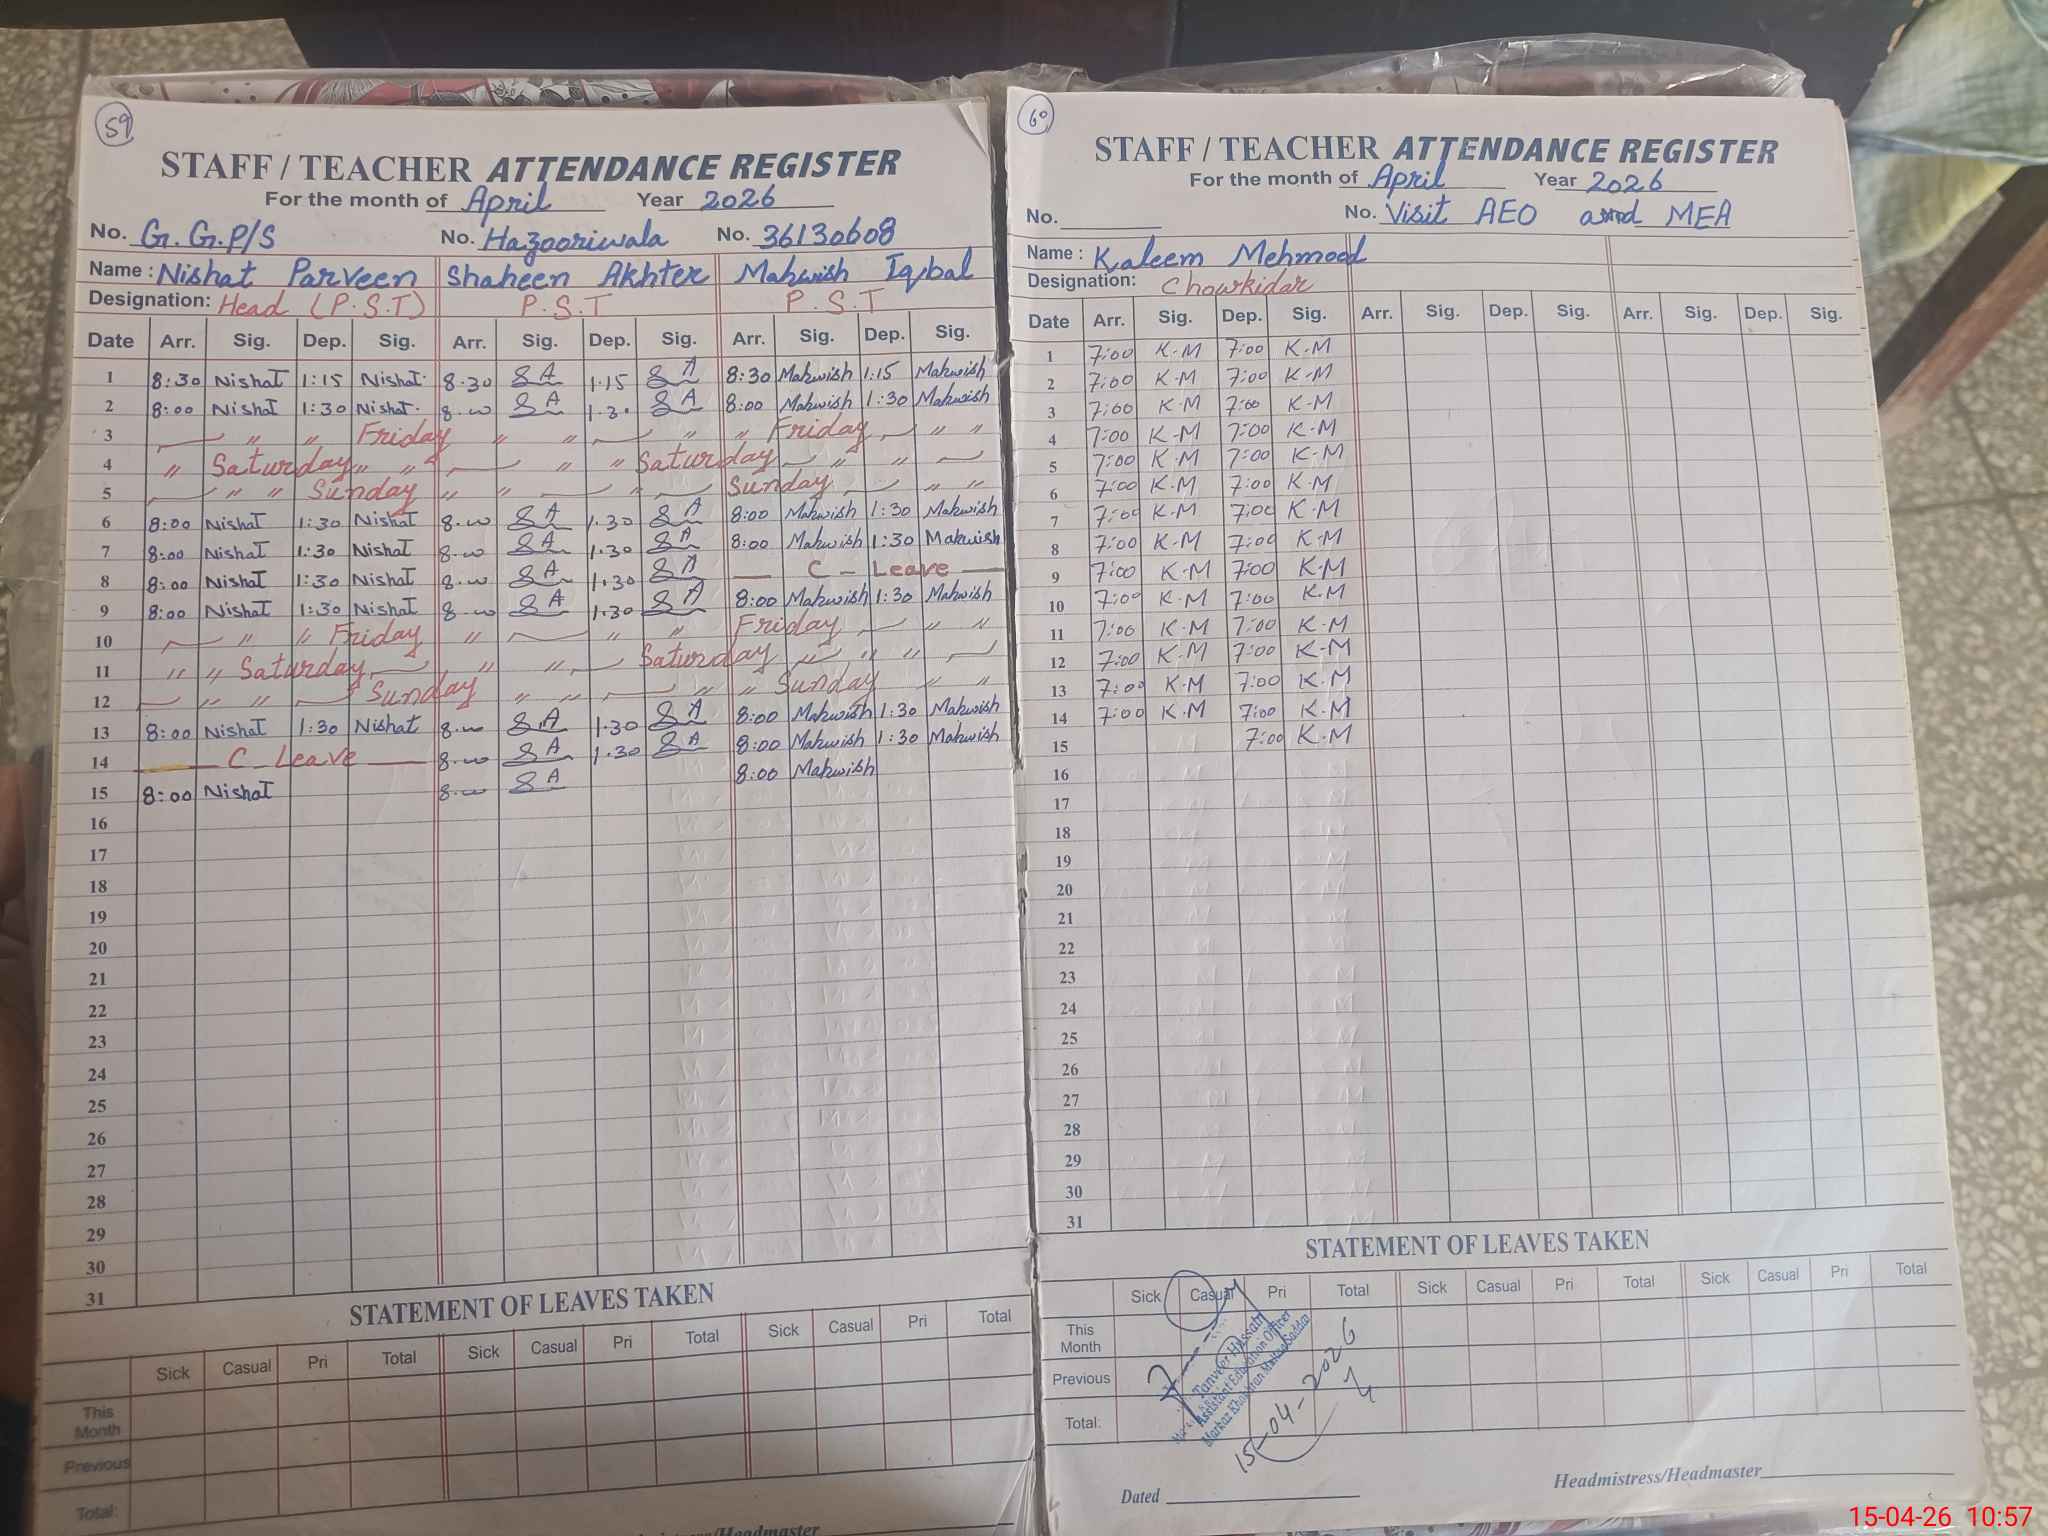 59
STAFF / TEACHER ATTENDANCE REGISTER
For the month of April Year 2026
No. G.G.P/S No. Hazooriwala No. 36130608
Name : Nishat Parveen Shaheen Akhter Mahwish Iqbal
Designation: Head (P.S.T) P.S.T P.S.T
Date Arr. Sig. Dep. Sig. Arr. Sig. Dep. Sig. Arr. Sig. Dep. Sig.
1 8:30 Nishat 1:15 Nishat 8.30 SA 1.15 SA 8:30 Mahwish 1:15 Mahwish
2 8:00 Nishat 1:30 Nishat 8.00 SA 1.30 SA 8:00 Mahwish 1:30 Mahwish
3 " " Friday " " " " Friday " "
4 " Saturday " " " " Saturday " "
5 " " Sunday " " " Sunday " "
6 8:00 Nishat 1:30 Nishat 8.00 SA 1.30 SA 8:00 Mahwish 1:30 Mahwish
7 8:00 Nishat 1:30 Nishat 8.00 SA 1.30 SA 8:00 Mahwish 1:30 Mahwish
8 8:00 Nishat 1:30 Nishat 8.00 SA 1.30 SA — C - Leave —
9 8:00 Nishat 1:30 Nishat 8.00 SA 1.30 SA 8:00 Mahwish 1:30 Mahwish
10 " " Friday " " " Friday " "
11 " " Saturday " " Saturday " " "
12 " " Sunday " " " " Sunday " "
13 8:00 Nishat 1:30 Nishat 8.00 SA 1.30 SA 8:00 Mahwish 1:30 Mahwish
14 — C - Leave — 8.00 SA 1.30 SA 8:00 Mahwish 1:30 Mahwish
15 8:00 Nishat 8.00 SA 8:00 Mahwish
16
17
18
19
20
21
22
23
24
25
26
27
28
29
30
31
STATEMENT OF LEAVES TAKEN
Sick Casual Pri Total Sick Casual Pri Total Sick Casual Pri Total
This Month
Previous
Total:
Headmistress/Headmaster
60
STAFF / TEACHER ATTENDANCE REGISTER
For the month of April Year 2026
No. No. Visit AEO and MEA
Name : Kaleem Mehmood
Designation: Chowkidar
Date Arr. Sig. Dep. Sig. Arr. Sig. Dep. Sig. Arr. Sig. Dep. Sig.
1 7:00 K.M 7:00 K.M
2 7:00 K.M 7:00 K.M
3 7:00 K.M 7:00 K.M
4 7:00 K.M 7:00 K.M
5 7:00 K.M 7:00 K.M
6 7:00 K.M 7:00 K.M
7 7:00 K.M 7:00 K.M
8 7:00 K.M 7:00 K.M
9 7:00 K.M 7:00 K.M
10 7:00 K.M 7:00 K.M
11 7:00 K.M 7:00 K.M
12 7:00 K.M 7:00 K.M
13 7:00 K.M 7:00 K.M
14 7:00 K.M 7:00 K.M
15 7:00 K.M
16
17
18
19
20
21
22
23
24
25
26
27
28
29
30
31
STATEMENT OF LEAVES TAKEN
Sick Casual Pri Total Sick Casual Pri Total Sick Casual Pri Total
This Month
Previous
Total:
Tanveer Hassan
Assistant Education Officer
Markaz
15-04-2026
Dated
Headmistress/Headmaster
15-04-26 10:57